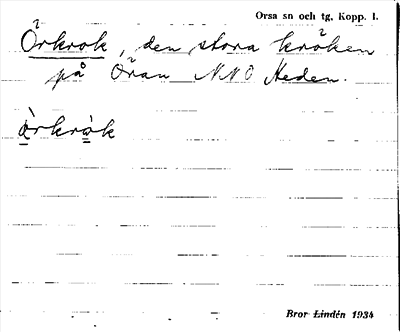 Orsa sn och tg, Kopp. l.
Örkrok, den stora kröken
på Öran NNO Heden.
òrkròk
Bror Lindén 1934